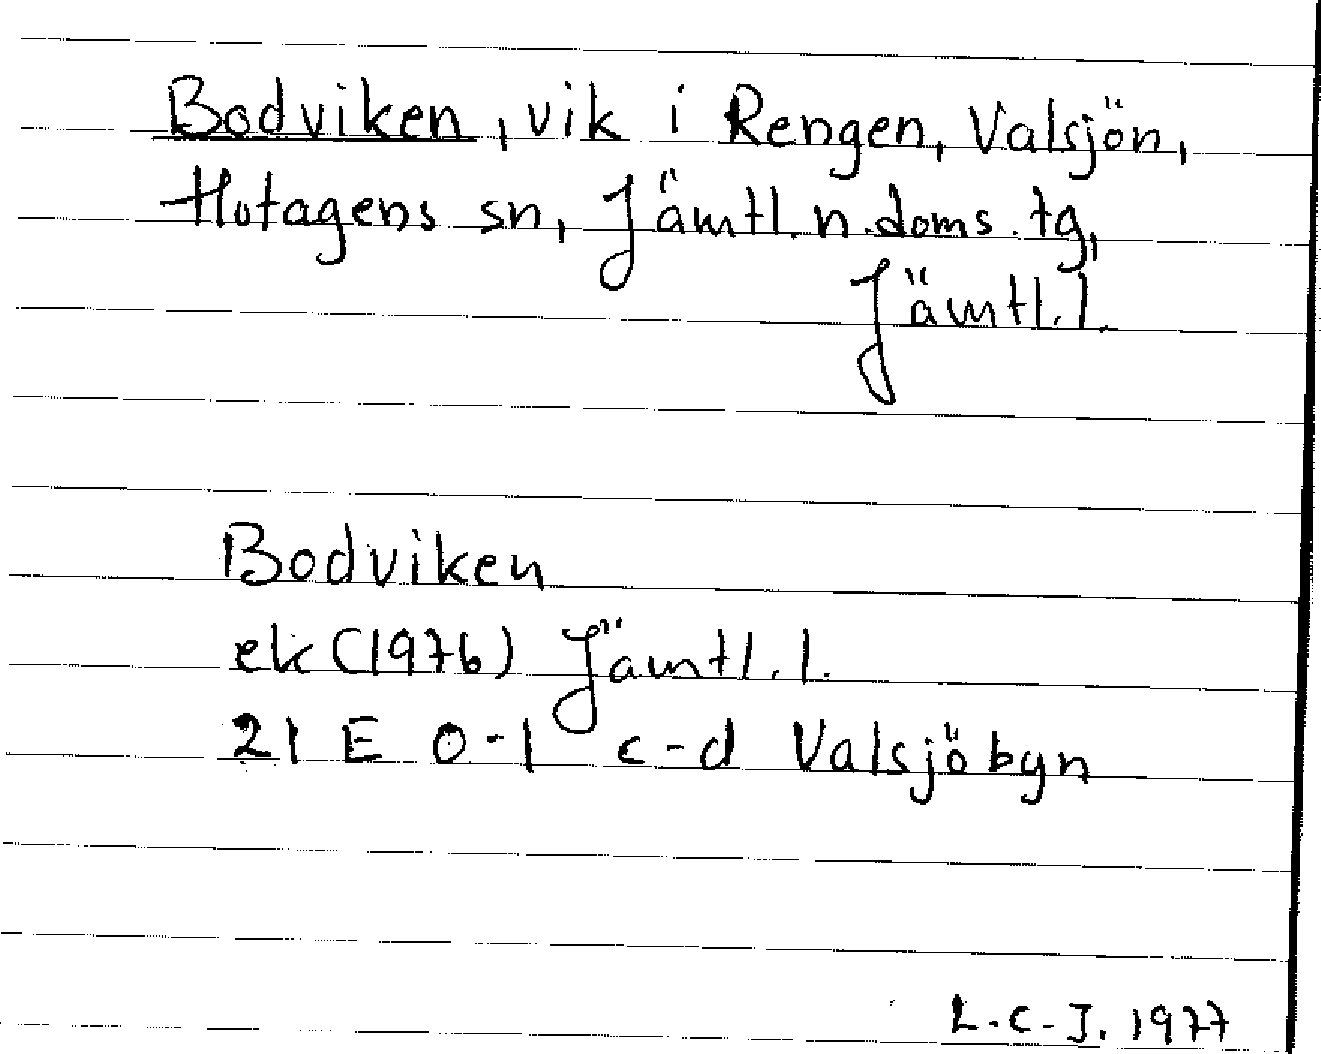 Bodviken, vik i Rengen, Valsjön,
Hotagens sn, Jämtl. n. doms. tg,
Jämtl. l.
Bodviken
ek (1976) Jämtl. l.
21 E 0-1 c-d Valsjöbyn
L.C-J. 1977